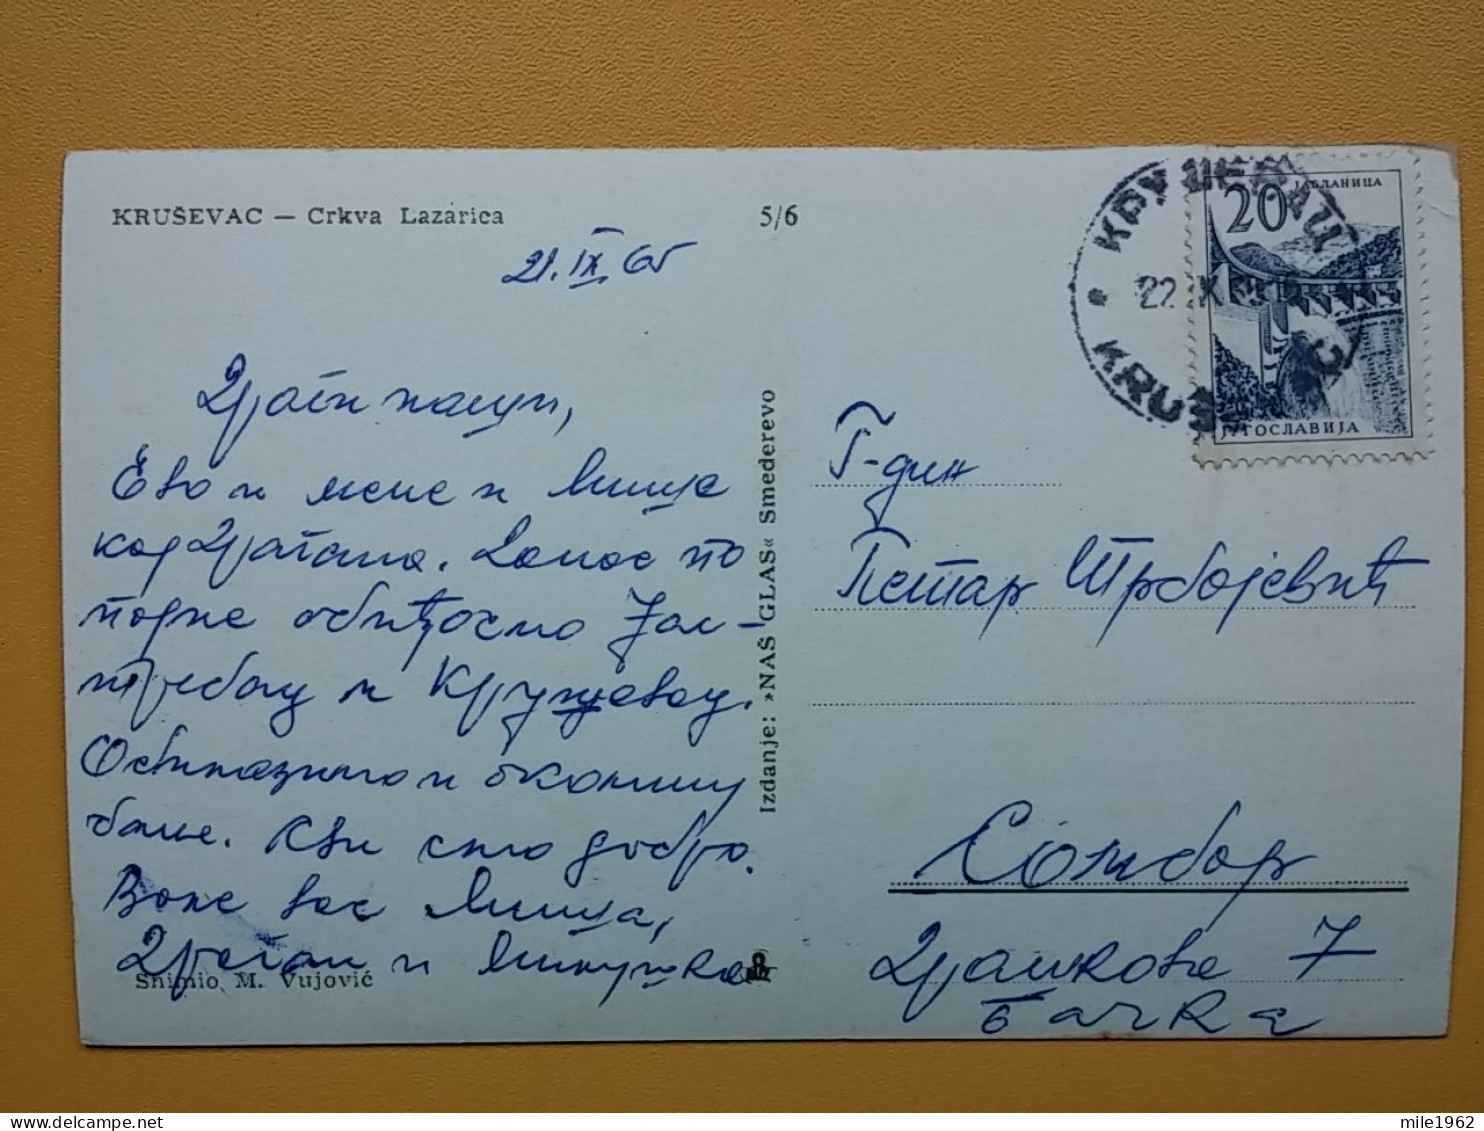 KRUŠEVAC — Crkva Lazarica
5/6
21. IX 65
Драги папуи,
Ево и мене и Мише
код Драгана. Данас по
подне обићосмо Јас-
требац и Крушевац.
Обилазимо и околину
бање. Сви смо добро.
Воле вас Миша,
Драган и Милушка
Snimio M. Vujović
Izdanje: »NAŠ GLAS« Smederevo
КРУШЕВАЦ
22
KRUŠ
20
ЈАБЛАНИЦА
ЈУГОСЛАВИЈА
Г-дин
Петар Трбојевић
Сомбор
7
Бачка
mile1962